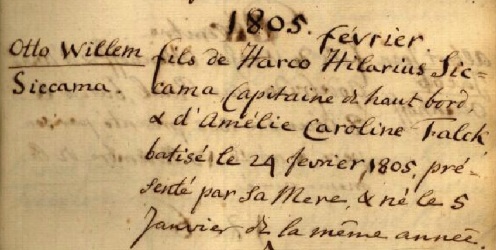 1805. Février.
Otto Willem
Siccama.
fils de Harco Hilarius Sic=
cama Capitaine de haut bord,
& d'Amélie Caroline Falck
batisé le 24 fevrier 1805. pré-
senté par sa Mere, & né le 5
Janvier de la même année.